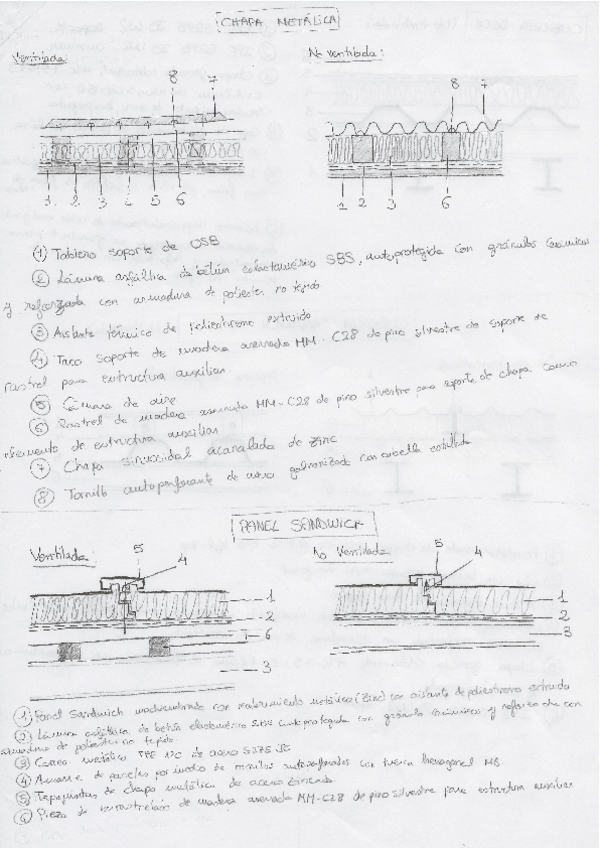 CHAPA METÁLICA
Ventilada
No ventilada:
8 7
8 7
1 2 3 4 5 6
1 2 3 6
① Tablero soporte de OSB
② Lámina asfáltica de betún elastomérico SBS, autoprotegida con gránulos cerámicos
y reforzada con armadura de poliester no tejido
③ Aislante térmico de poliestireno extruido
④ Taco soporte de madera aserrada MM-C28 de pino silvestre de soporte de
rastrel para estructura auxiliar
⑤ Cámara de aire
⑥ Rastrel de madera aserrada MM-C28 de pino silvestre para soporte de chapa como
elemento de estructura auxiliar
⑦ Chapa sinusoidal acanalada de zinc
⑧ Tornillo autoperforante de acero galvanizado con arandela
PANEL SANDWICH
Ventilada:
No Ventilada
5
4
1
2
6
3
5
4
1
2
3
① Panel Sandwich machihembrado con revestimiento metálico (Zinc) con aislante de poliestireno extruido
② Lámina asfáltica de betún elastomérico SBS autoprotegida con gránulos cerámicos y reforzada con
armadura de poliester no tejido
③ Correa metálica de acero S275 JR
④ Amarre de paneles por medio de tornillos autoperforados con tuerca hexagonal M8
⑤ Tapajuntas de chapa metálica de acero zincado
⑥ Pieza de madera aserrada MM-C28 de pino silvestre para estructura auxiliar